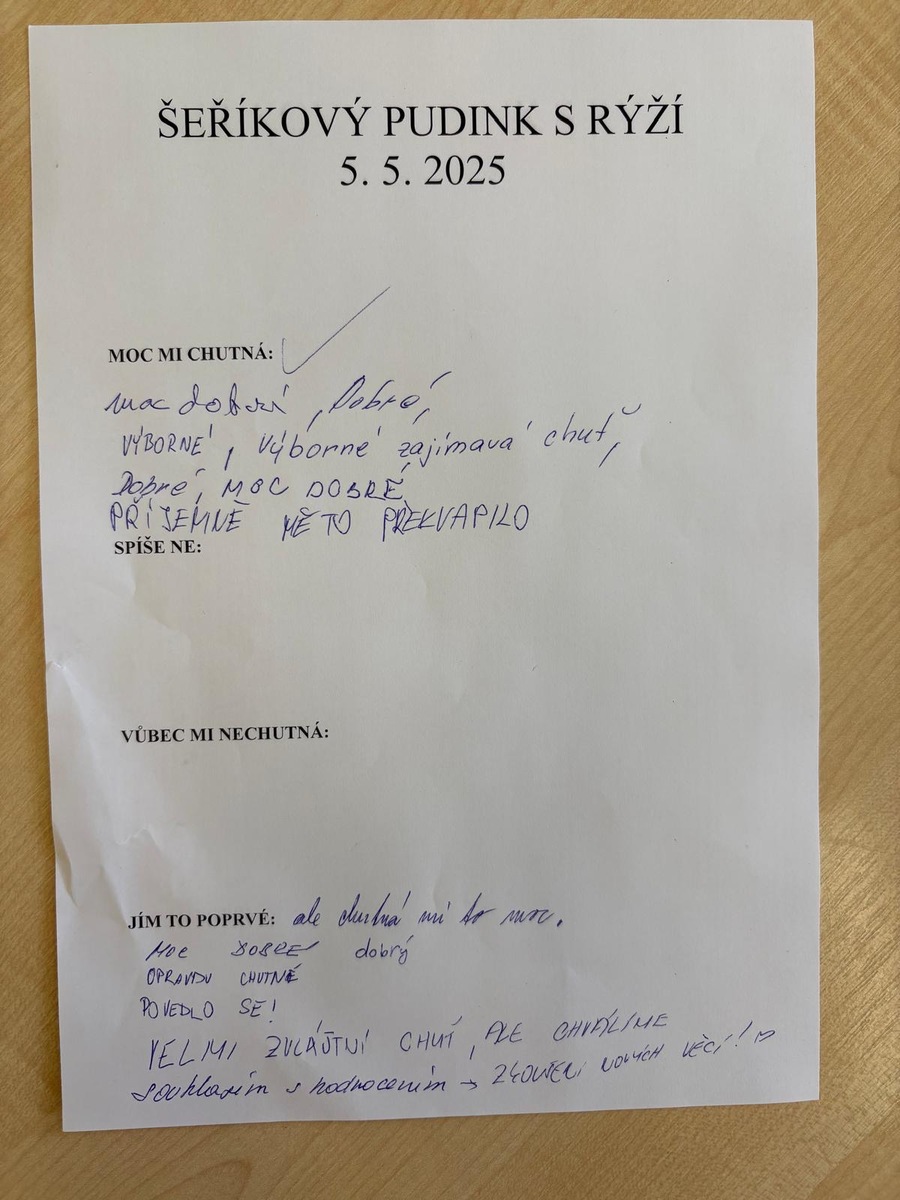 ŠEŘÍKOVÝ PUDINK S RÝŽÍ
5. 5. 2025
MOC MI CHUTNÁ:
moc dobré, Dobré,
VÝBORNÉ, Výborné zajímavá chuť,
Dobré, MOC DOBRÉ,
PŘÍJEMNĚ MĚ TO PŘEKVAPILO
SPÍŠE NE:
VŮBEC MI NECHUTNÁ:
JÍM TO POPRVÉ: ale chutná mi to moc.
MOC DOBRÉ dobrý
OPRAVDU CHUTNÉ
POVEDLO SE!
VELMI ZVLÁŠTNÍ CHUŤ, ALE CHVÁLÍME
souhlasím s hodnocením → ZKOUŠENÍ NOVÝCH VĚCÍ!